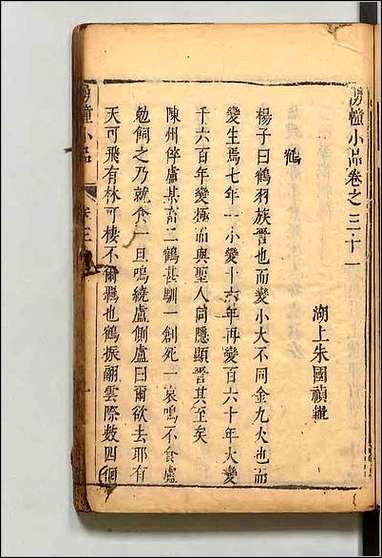 湧幢小品卷之三十一
湖上朱國禎輯
鶴
楊子曰鶴羽族晉也而變小大不同金九火也而
變生焉七年一小變十六年再變百六十年大變
千六百年變極而與聖人同隱顯晉其至矣
陳州倅盧某畜二鶴甚馴一創死一哀鳴不食盧
勉飼之乃就食一旦鳴繞盧側盧曰爾欲去耶有
天可飛有林可棲不爾羈也鶴振翮雲際數四徊
湧幢小品
卷三